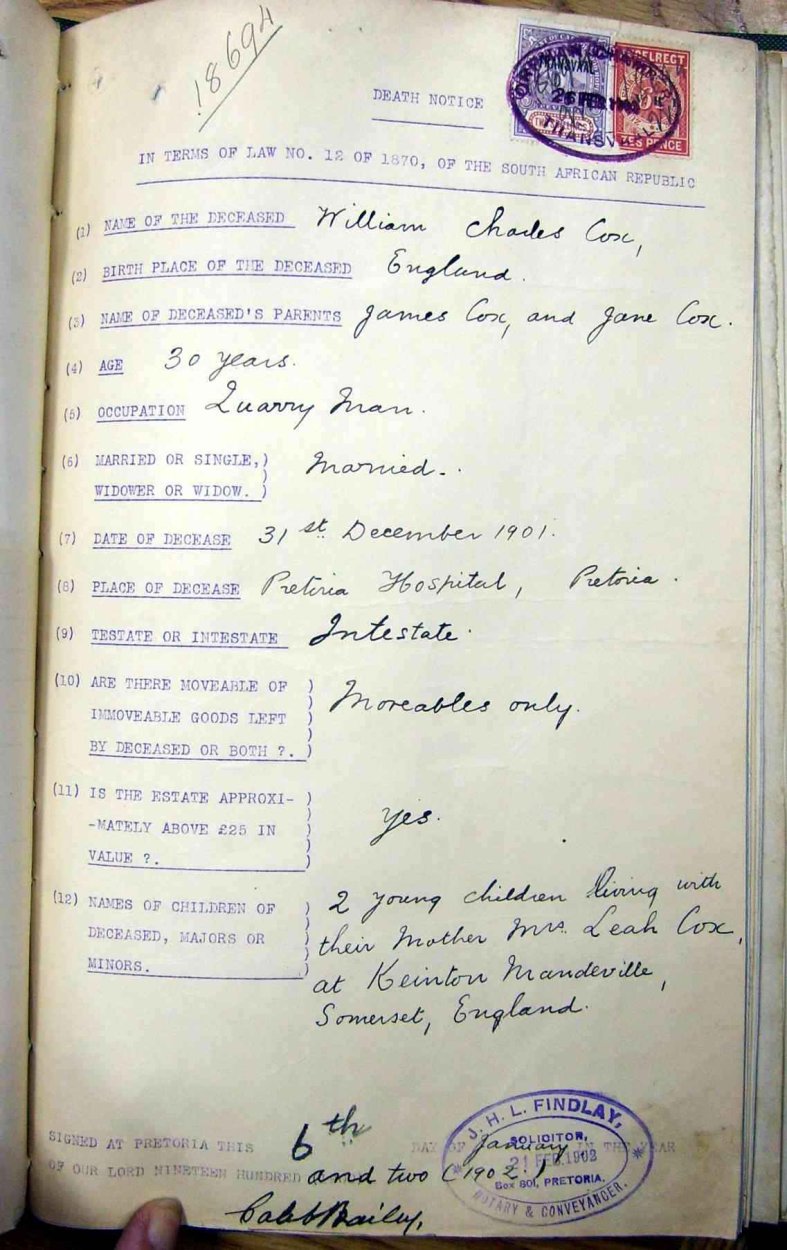 18694
DEATH NOTICE
TRANSVAAL
26 FEB 1902
TRANSVAAL
ZES PENCE
IN TERMS OF LAW NO. 12 OF 1870, OF THE SOUTH AFRICAN REPUBLIC
(1) NAME OF THE DECEASED William Charles Cox,
(2) BIRTH PLACE OF THE DECEASED England.
(3) NAME OF DECEASED'S PARENTS James Cox, and Jane Cox.
(4) AGE 30 years.
(5) OCCUPATION Quarry Man.
(6) MARRIED OR SINGLE,) Married.
WIDOWER OR WIDOW. )
(7) DATE OF DECEASE 31st December 1901.
(8) PLACE OF DECEASE Pretoria Hospital, Pretoria.
(9) TESTATE OR INTESTATE Intestate.
(10) ARE THERE MOVEABLE OF ) Moveables only.
IMMOVEABLE GOODS LEFT )
BY DECEASED OR BOTH ?. )
(11) IS THE ESTATE APPROXI- )
-MATELY ABOVE £25 IN ) Yes.
VALUE ?. )
(12) NAMES OF CHILDREN OF ) 2 young children living with
DECEASED, MAJORS OR ) their Mother Mrs. Leah Cox,
MINORS. ) at Keinton Mandeville,
Somerset, England.
SIGNED AT PRETORIA THIS 6th DAY OF January IN THE YEAR
OF OUR LORD NINETEEN HUNDRED and two (1902.)
Caleb Bailey.
J. H. L. FINDLAY,
SOLICITOR,
21 FEB. 1902
Box 801, PRETORIA.
NOTARY & CONVEYANCER.